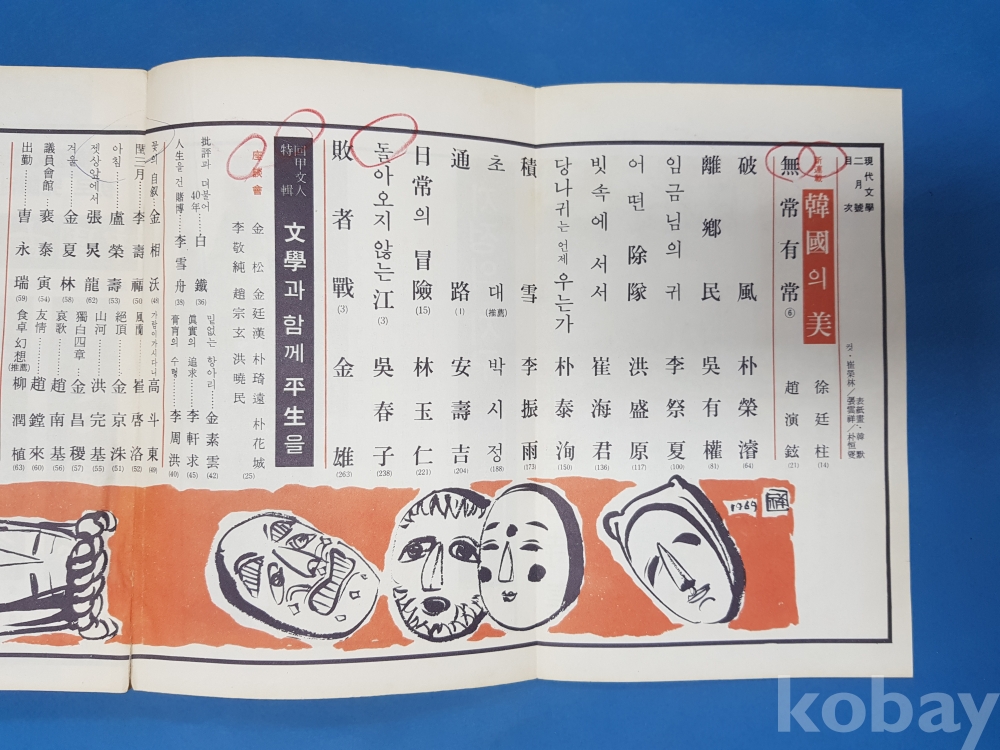 現代文學
二月號
目次
컷·崔榮林/張雲祥/朴恒燮
表紙畵·韓默
新連載 韓國의 美 徐廷柱 (14)
無常有常 ⑥ 趙演鉉 (21)
破風 朴榮濬 (64)
離鄕民 吳有權 (81)
임금님의 귀 李祭夏 (100)
어떤 除隊 洪盛原 (117)
빗속에 서서 崔海君 (136)
당나귀는 언제 우는가 朴泰洵 (150)
積雪 李振雨 (173)
초대 (推薦) 박시정 (188)
通路 (1) 安壽吉 (204)
日常의 冒險 (15) 林玉仁 (221)
돌아오지 않는 江 (3) 吳春子 (238)
敗者戰 (3) 金雄 (263)
回甲文人特輯 文學과 함께 平生을
座談會
金松 金廷漢 朴琦遠 朴花城
李敬純 趙宗玄 洪曉民 (25)
批評과 더불어 40年……白鐵 (36)
밑없는 항아리……金素雲 (42)
人生을 건 賭博……李雪舟 (38)
眞實의 追求……李軒求 (45)
膏肓의 수형……李周洪 (40)
꽃의 自叙……金相沃 (48)
가람이 가시다니 高斗東 (49)
閏三月……李壽福 (50)
風蘭……崔啓洛 (52)
아침……盧榮壽 (53)
絕頂……金京洙 (51)
젯상앞에서……張炅龍 (62)
山河……洪完基 (55)
겨울……金夏林 (58)
獨白四章……金昌稷 (57)
議員會館……裵泰寅 (54)
哀歌……趙南基 (56)
出勤……曺永瑞 (59)
友情……趙鏜來 (60)
食卓幻想 (推薦) 柳潤植 (63)
1969
kobay